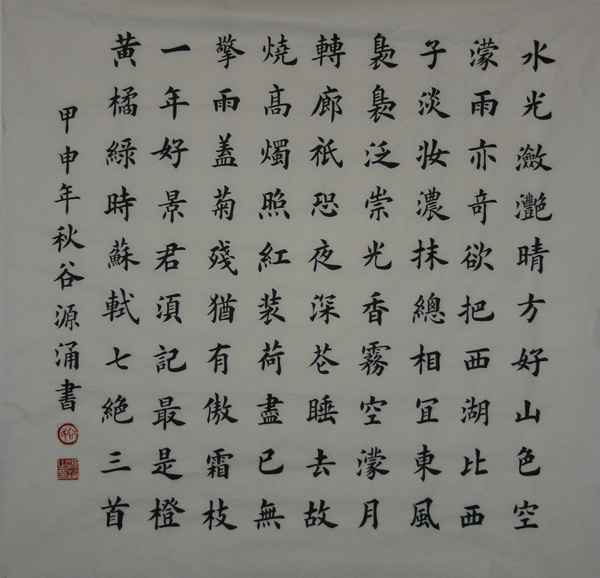 水光瀲灧晴方好山色空
濛雨亦奇欲把西湖比西
子淡妆濃抹總相冝東風
裊裊泛崇光香霧空濛月
轉廊祇恐夜深花睡去故
燒髙燭照紅装荷盡已無
擎雨蓋菊殘猶有傲霜枝
一年好景君湏記最是橙
黃橘綠時蘇軾七絕三首
甲申年秋谷源涌書